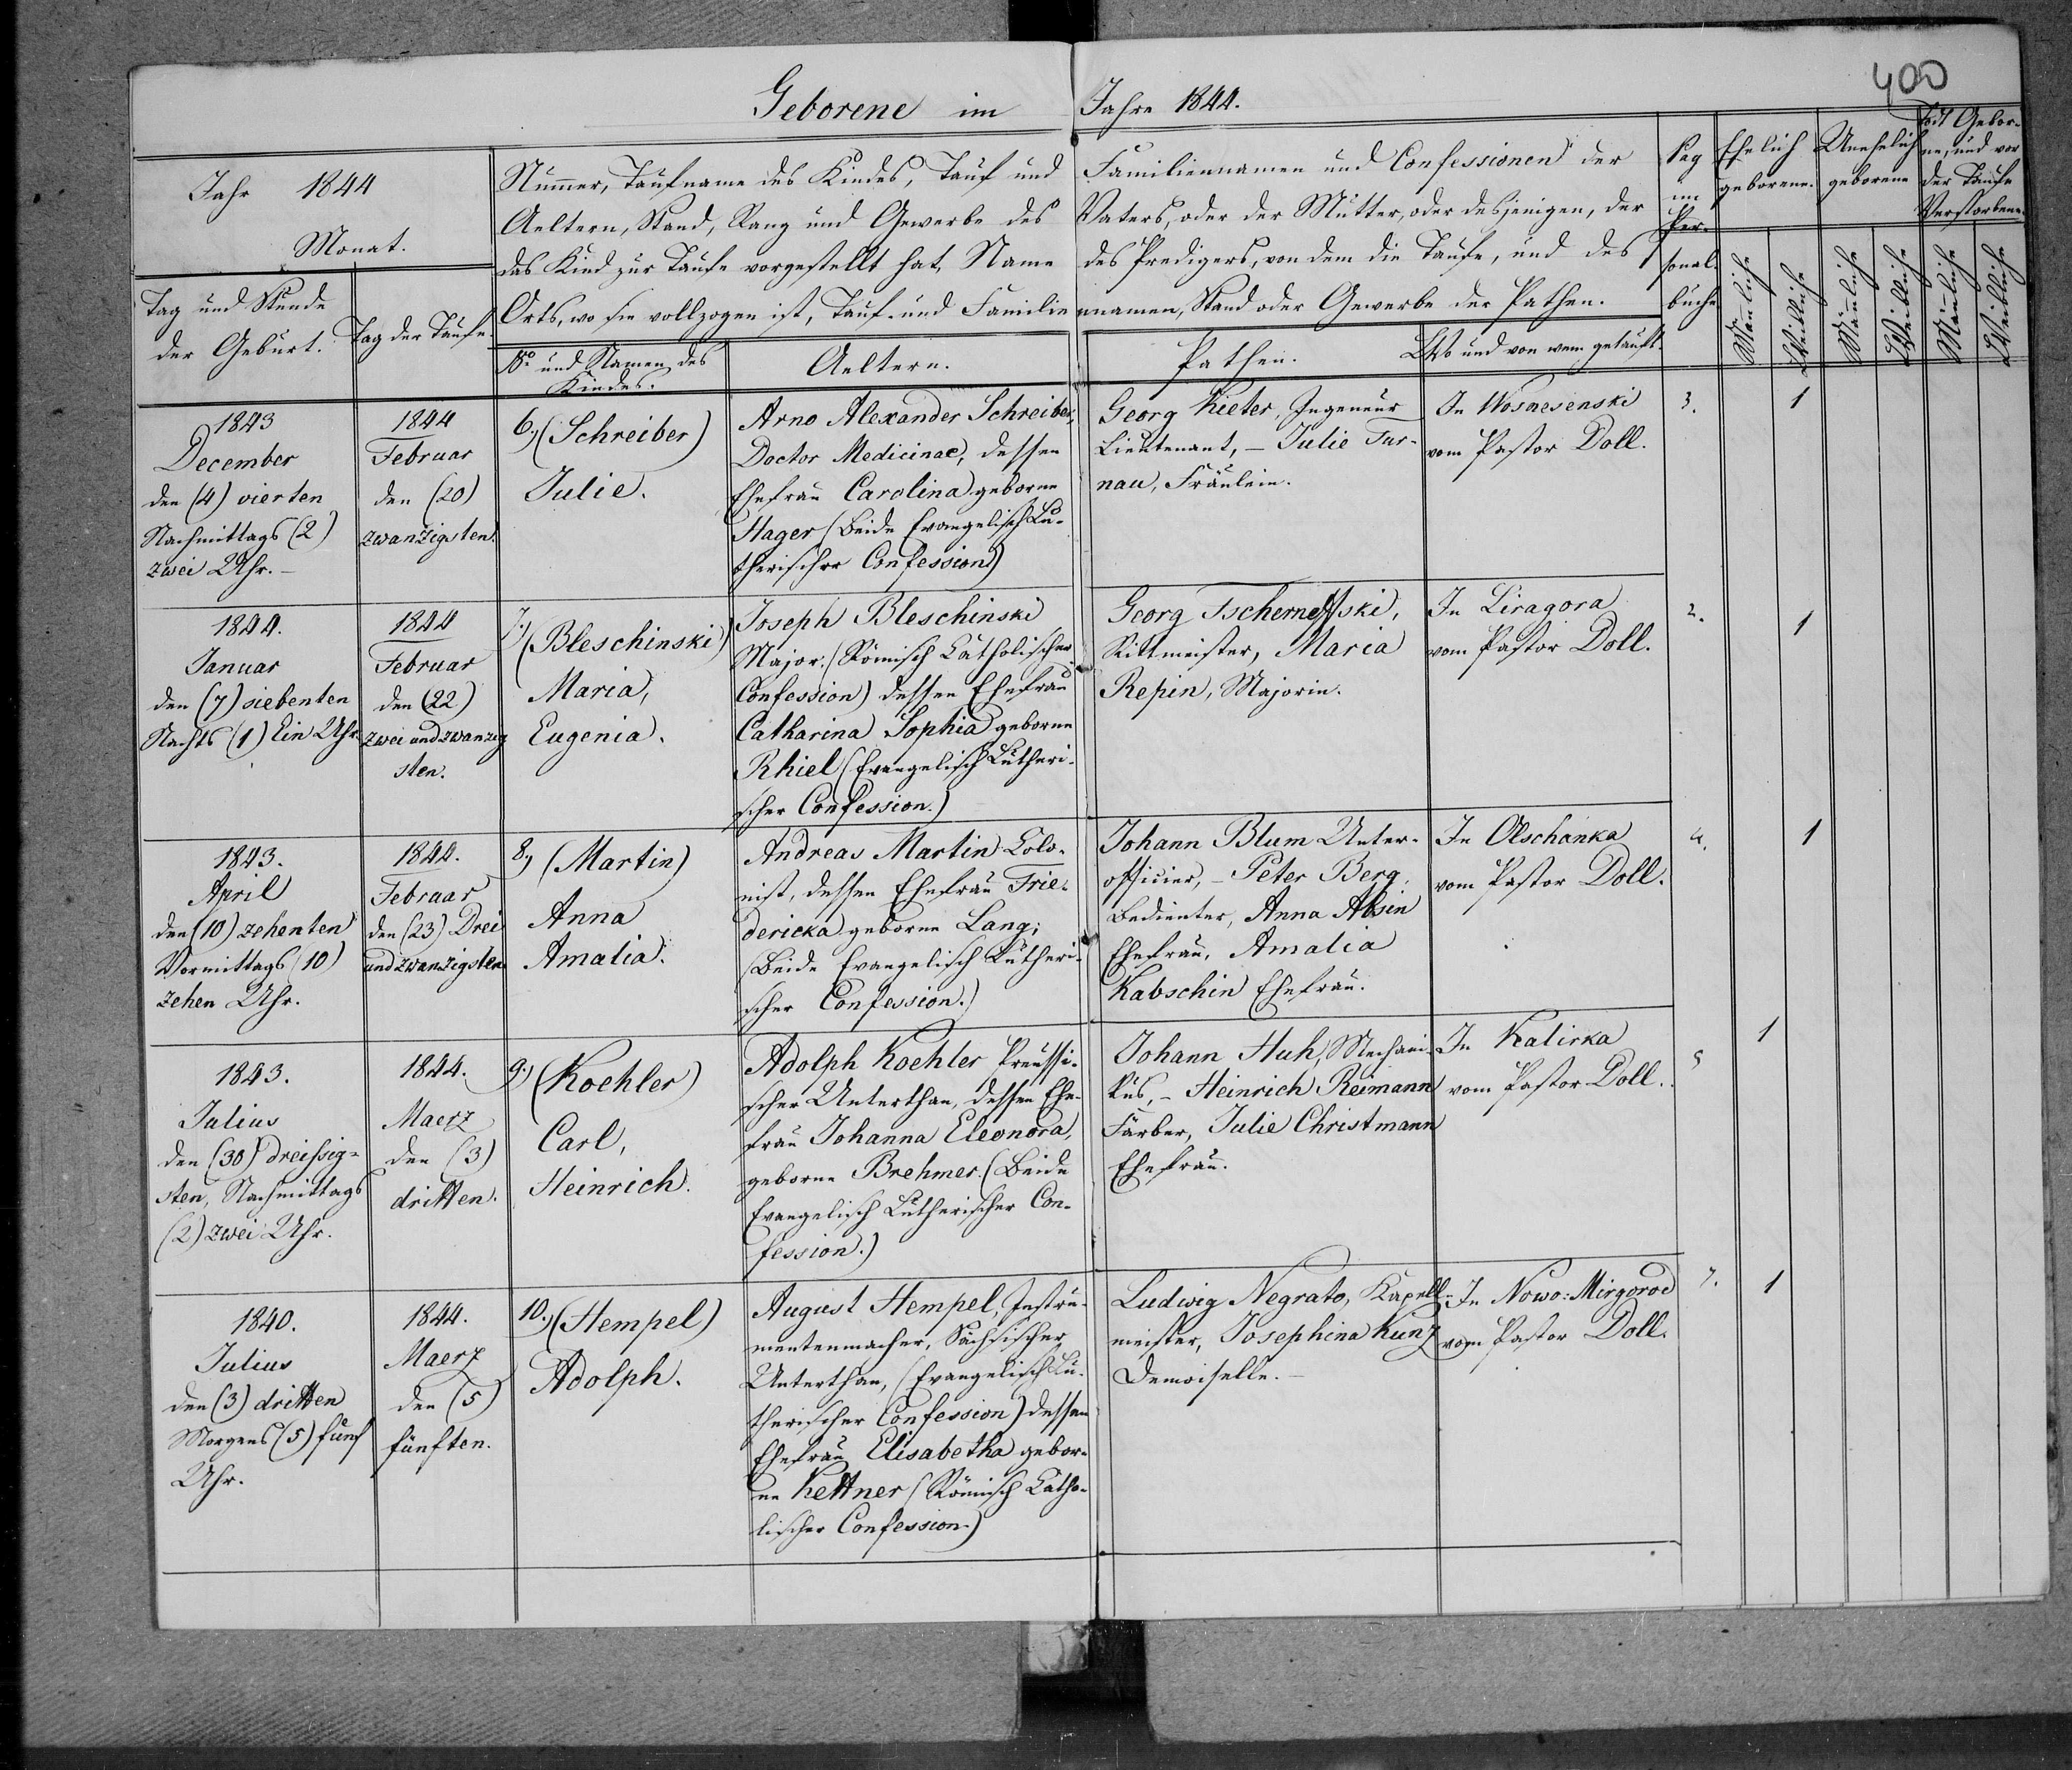 400
Geborene im Jahre 1844.
Jahr 1844
Monat.
Tag und Stunde
der Geburt.
Tag der Taufe.
Nummer, Taufname des Kindes, Tauf und Familiennamen und Confessionen der
Aeltern, Stand, Rang und Gewerbe des Vaters, oder der Mutter, oder desjenigen, der
das Kind zur Taufe vorgestellt hat, Name des Predigers, von dem die Taufe, und des
Orts, wo sie vollzogen ist, Tauf- und Familiennamen, Stand oder Gewerbe der Pathen.
No und Namen des
Kindes.
Aeltern.
Pathen.
Wo und von wem getauft.
Pag
im
Per-
sonal-
buche
Ehelich
geborene.
Unehelich
geborene
Todt Gebor-
ne, und vor
der Taufe
Verstorbene.
Männliche
Weibliche
Männliche
Weibliche
Männliche
Weibliche
1843
December
den (4) vierten
Nachmittags (2)
zwei Uhr. –
1844
Februar
den (20)
zwanzigsten.
6.) (Schreiber)
Julie.
Arno Alexander Schreiber,
Doctor Medicinae, dessen
Ehefrau Carolina geborne
Hager (Beide Evangelisch Lu-
therischer Confession)
Georg Kieter, Ingeneur
Lieutenant, – Julie Tur-
nau, Fräulein.
In Wosnesenski
vom Pastor Doll.
3.
1
1844.
Januar
den (7) siebenten
Nachts (1) Ein Uhr.
1844
Februar
den (22)
zwei und zwanzig
sten.
7.) (Bleschinski)
Maria,
Eugenia.
Joseph Bleschinski
Major. (Römisch Catholischer
Confession) dessen Ehefrau
Catharina Sophia geborne
Rhiel (Evangelisch Lutheri-
scher Confession.)
Georg
Rittmeister, Maria
Repin, Majorin.
In Liragora
vom Pastor Doll.
2.
1
1843.
April
den (10) zehenten
Vormittags (10)
zehen Uhr.
1844.
Februar
den (23) Drei
und zwanzigsten
8.) (Martin)
Anna
Amalia.
Andreas Martin Colo-
nist, dessen Ehefrau Frie-
dericka geborne Lang;
(Beide Evangelisch Lutheri-
scher Confession.)
Johann Blum Unter-
officier, – Peter Berg,
Bedienter, Anna Absin
Ehefrau, Amalia
Kabschin Ehefrau.
In Olschanka
vom Pastor Doll.
4.
1
1843.
Julius
den (30) dreissig-
sten, Nachmittags
(2) zwei Uhr.
1844.
Maerz
den (3)
dritten.
9.) (Koehler)
Carl,
Heinrich.
Adolph Koehler Preussi-
scher Unterthan, dessen Ehe-
frau Johanna Eleonora,
geborne Brehmer. (Beide
Evangelisch Lutherischer Con-
fession.)
Johann Huh, Mechani-
kus, – Heinrich Reimann
Färber, Julie Christmann
Ehefrau.
In Katirka
vom Pastor Doll.
5
1
1840.
Julius
den (3) dritten
Morgens (5) fünf
Uhr.
1844.
Maerz
den (5)
fünften.
10.) (Hempel)
Adolph.
August Hempel, Instru-
mentenmacher, Sächsischer
Unterthan, (Evangelisch Lu-
therischer Confession) dessen
Ehefrau Elisabetha gebor-
ne Kettner (Römisch Catho-
lischer Confession.)
Ludwig Negrato, Kapell-
meister, Josephina Kunz
Demoiselle. –
In Nowo-Mirgorod
vom Pastor Doll.
7.
1